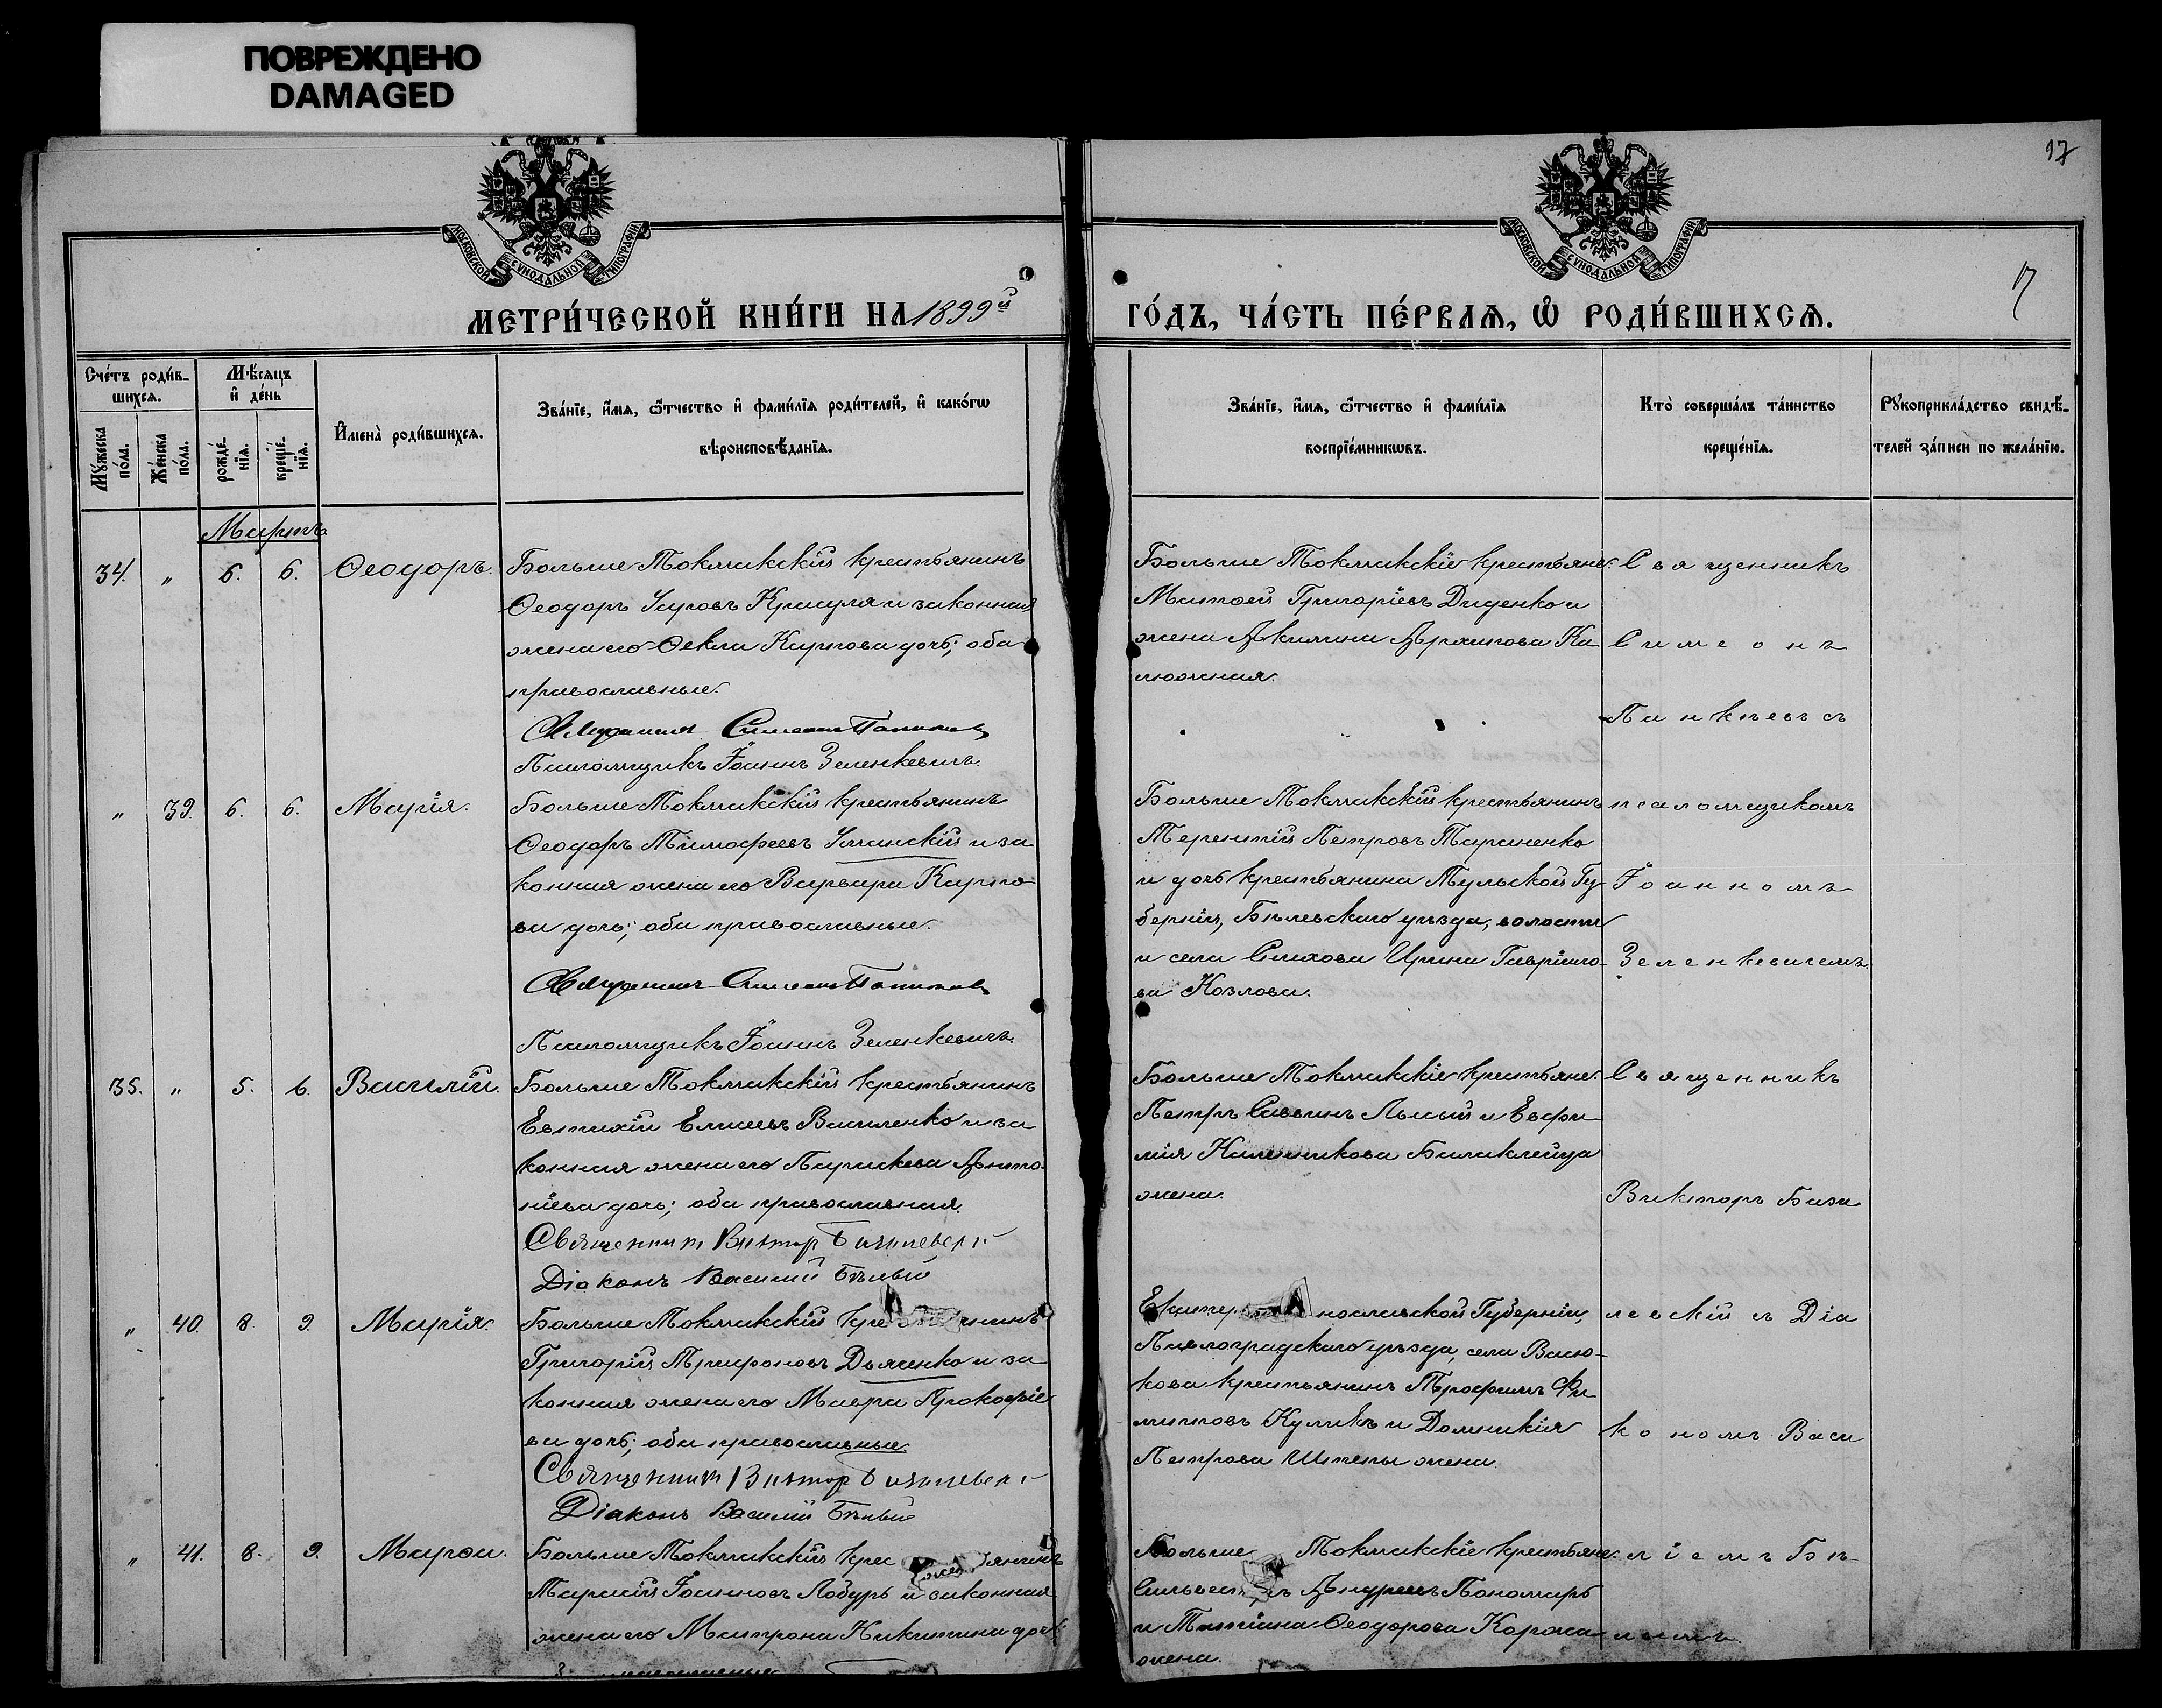 ПОВРЕЖДЕНО
DAMAGED
17
МОСКОВСКОЙ СѴНОДАЛЬНОЙ ТИПОГРАФІИ
МОСКОВСКОЙ СѴНОДАЛЬНОЙ ТИПОГРАФІИ
17
МЕТРИ́ЧЕСКОЙ КНИ́ГИ НА 1899й
ГО́ДЪ, ЧА́СТЬ ПЕ́РВАѦ, Ѡ РОДИ́ВШИХСѦ.
Сче́тъ роди́в-
шихсѧ.
Мꙋжеска по́ла.
Же́нска по́ла.
Мѣ́сѧцъ и де́нь
рожде́-нїѧ.
креще́-нїѧ.
Имена̀ роди́вшихсѧ.
Зва́нїе, и́мѧ, ѻ́тчество и фами́лїѧ роди́телей, и како́гѡ
вѣроисповѣ́данїѧ.
Зва́нїе, и́мѧ, ѻ́тчество и фами́лїѧ
воспрїе́мникѡвъ.
Кто̀ соверша́лъ та́инство
креще́нїѧ.
Рꙋкоприкла́дство свидѣ́-
телей за́писи по жела́нїю.
Мартъ
34. " 6. 6. Ѳеодоръ.
Больше Токмакскій крестьянинъ
Ѳеодоръ Красуля и законная
жена его Ѳекла Карпова дочь; оба
православные.
Псаломщикъ Іоаннъ Зеленкевичъ.
Больше Токмакскіе крестьяне:
Матѳей Григоріевъ Диденко и
жена Акилина Ка
люжная.
Священникъ
Симеонъ
съ
" 39. 6. 6. Марія.
Больше Токмакскій крестьянинъ
Ѳеодоръ Тимоѳеевъ Уманскій и за
конная жена его Варвара Карпо
ва дочь; оба православные.
Псаломщикъ Іоаннъ Зеленкевичъ.
Больше Токмакскій крестьянинъ
Терентій Петровъ Тараненко
и дочь крестьянина Тульской Гу-
берніи, Бѣлевскаго уѣзда, волости
и села Ирина Гавріило-
ва Козлова.
псаломщикомъ
Іоанномъ
Зеленкевичемъ.
35. " 5. 6. Василій.
Больше Токмакскій крестьянинъ
Евтихій Василенко и за
конная жена его Параскева Анто-
ніева дочь; оба православныя.
Священникъ Викторъ
Діаконъ Василій Бѣлый
Больше Токмакскіе крестьяне:
Петръ Саввинъ Лысый и Евфи-
мія
жена.
Священникъ
Викторъ Бази
" 40. 8. 9. Марія.
Больше Токмакскій
Григорій Трифоновъ Дьяченко и за
конная жена его Мавра Прокофіе
ва дочь; оба православные.
Священникъ Викторъ
Діаконъ Василій Бѣлый
Екатеринославской Губерніи,
Павлоградскаго уѣзда, села Васю-
кова крестьянинъ Трофимъ Фи
липповъ Куликъ и Домникія
Петрова Шпеты жена.
левскій съ Діа
кономъ Васи
" 41. 8. 9. Марѳа.
Больше Токмакскій
Тарасій Іоанновъ Лобуръ и законная
жена его Матрона Никитина дочь
Больше Токмакскіе крестьяне:
Андреевъ Пономарь
и Татіана Ѳеодорова
жена.
ліемъ Бѣ-
лымъ.